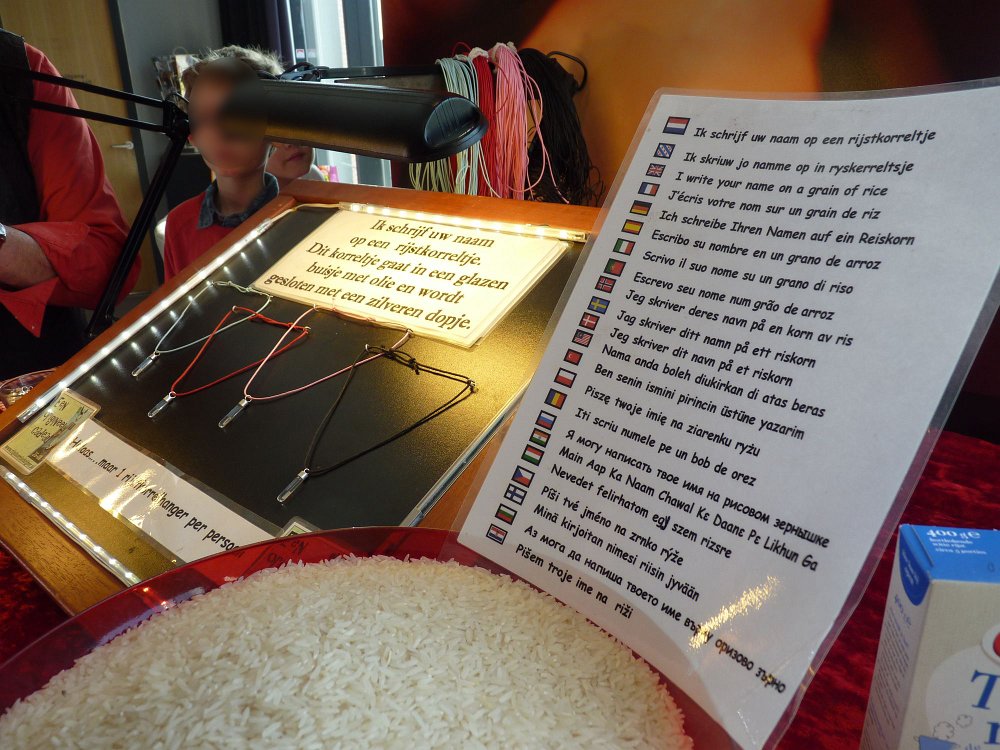 Ik schrijf uw naam
op een rijstkorreltje.
Dit korreltje gaat in een glazen
buisje met olie en wordt
gesloten met een zilveren dopje.
per perso
Ik schrijf uw naam op een rijstkorreltje
Ik skriuw jo namme op in ryskerreltsje
I write your name on a grain of rice
J'écris votre nom sur un grain de riz
Ich schreibe Ihren Namen auf ein Reiskorn
Escribo su nombre en un grano de arroz
Scrivo il suo nome su un grano di riso
Escrevo seu nome num grão de arroz
Jeg skriver deres navn på en korn av ris
Jag skriver ditt namn på ett riskorn
Jeg skriver dit navn på et riskorn
Nama anda boleh diukirkan di atas beras
Ben senin ismini pirincin üstüne yazarim
Piszę twoje imię na ziarenku ryżu
Iti scriu numele pe un bob de orez
Я могу написать твое имя на рисовом зернышке
Main Aap Ka Naam Chawal Ke Daane Pe Likhun Ga
Nevedet felirhatom egy szem rizsre
Píši tvé jméno na zrnko rýže
Minä kirjoitan nimesi riisin jyvään
Аз мога да напиша твоето име върху оризово зърно
Pišem troje ime na riži
400 g e